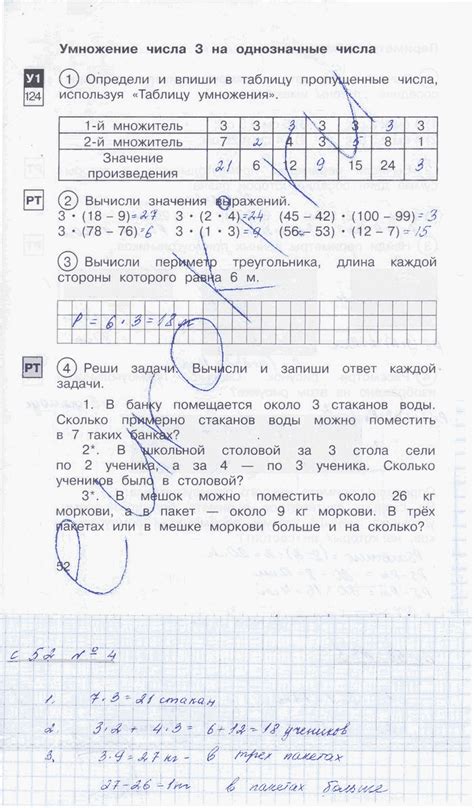 Умножение числа 3 на однозначные числа
У1
124
1 Определи и впиши в таблицу пропущенные числа,
используя «Таблицу умножения».
1-й множитель 3 3 3 3 3 3 3
2-й множитель 7 2 4 3 5 8 1
Значение произведения 21 6 12 9 15 24 3
РТ
2 Вычисли значения выражений.
3 · (18 – 9)=27 3 · (2 · 4)=24 (45 – 42) · (100 – 99)= 3
3 · (78 – 76)=6 3 · (1 · 3)=9 (56 – 53) · (12 – 7)= 15
3 Вычисли периметр треугольника, длина каждой
стороны которого равна 6 м.
P = 6 · 3 = 18 м
РТ
4 Реши задачи. Вычисли и запиши ответ каждой
задачи.
1. В банку помещается около 3 стаканов воды.
Сколько примерно стаканов воды можно поместить
в 7 таких банках?
2*. В школьной столовой за 3 стола сели
по 2 ученика, а за 4 — по 3 ученика. Сколько
учеников было в столовой?
3*. В мешок можно поместить около 26 кг
моркови, а в пакет — около 9 кг моркови. В трёх
пакетах или в мешке моркови больше и на сколько?
52
с 52 № 4
1. 7·3=21 стакан
2. 3·2 + 4·3 = 6+12=18 учеников
3. 3·9=27 кг - в трех пакетах
27-26=1 в пакетах больше